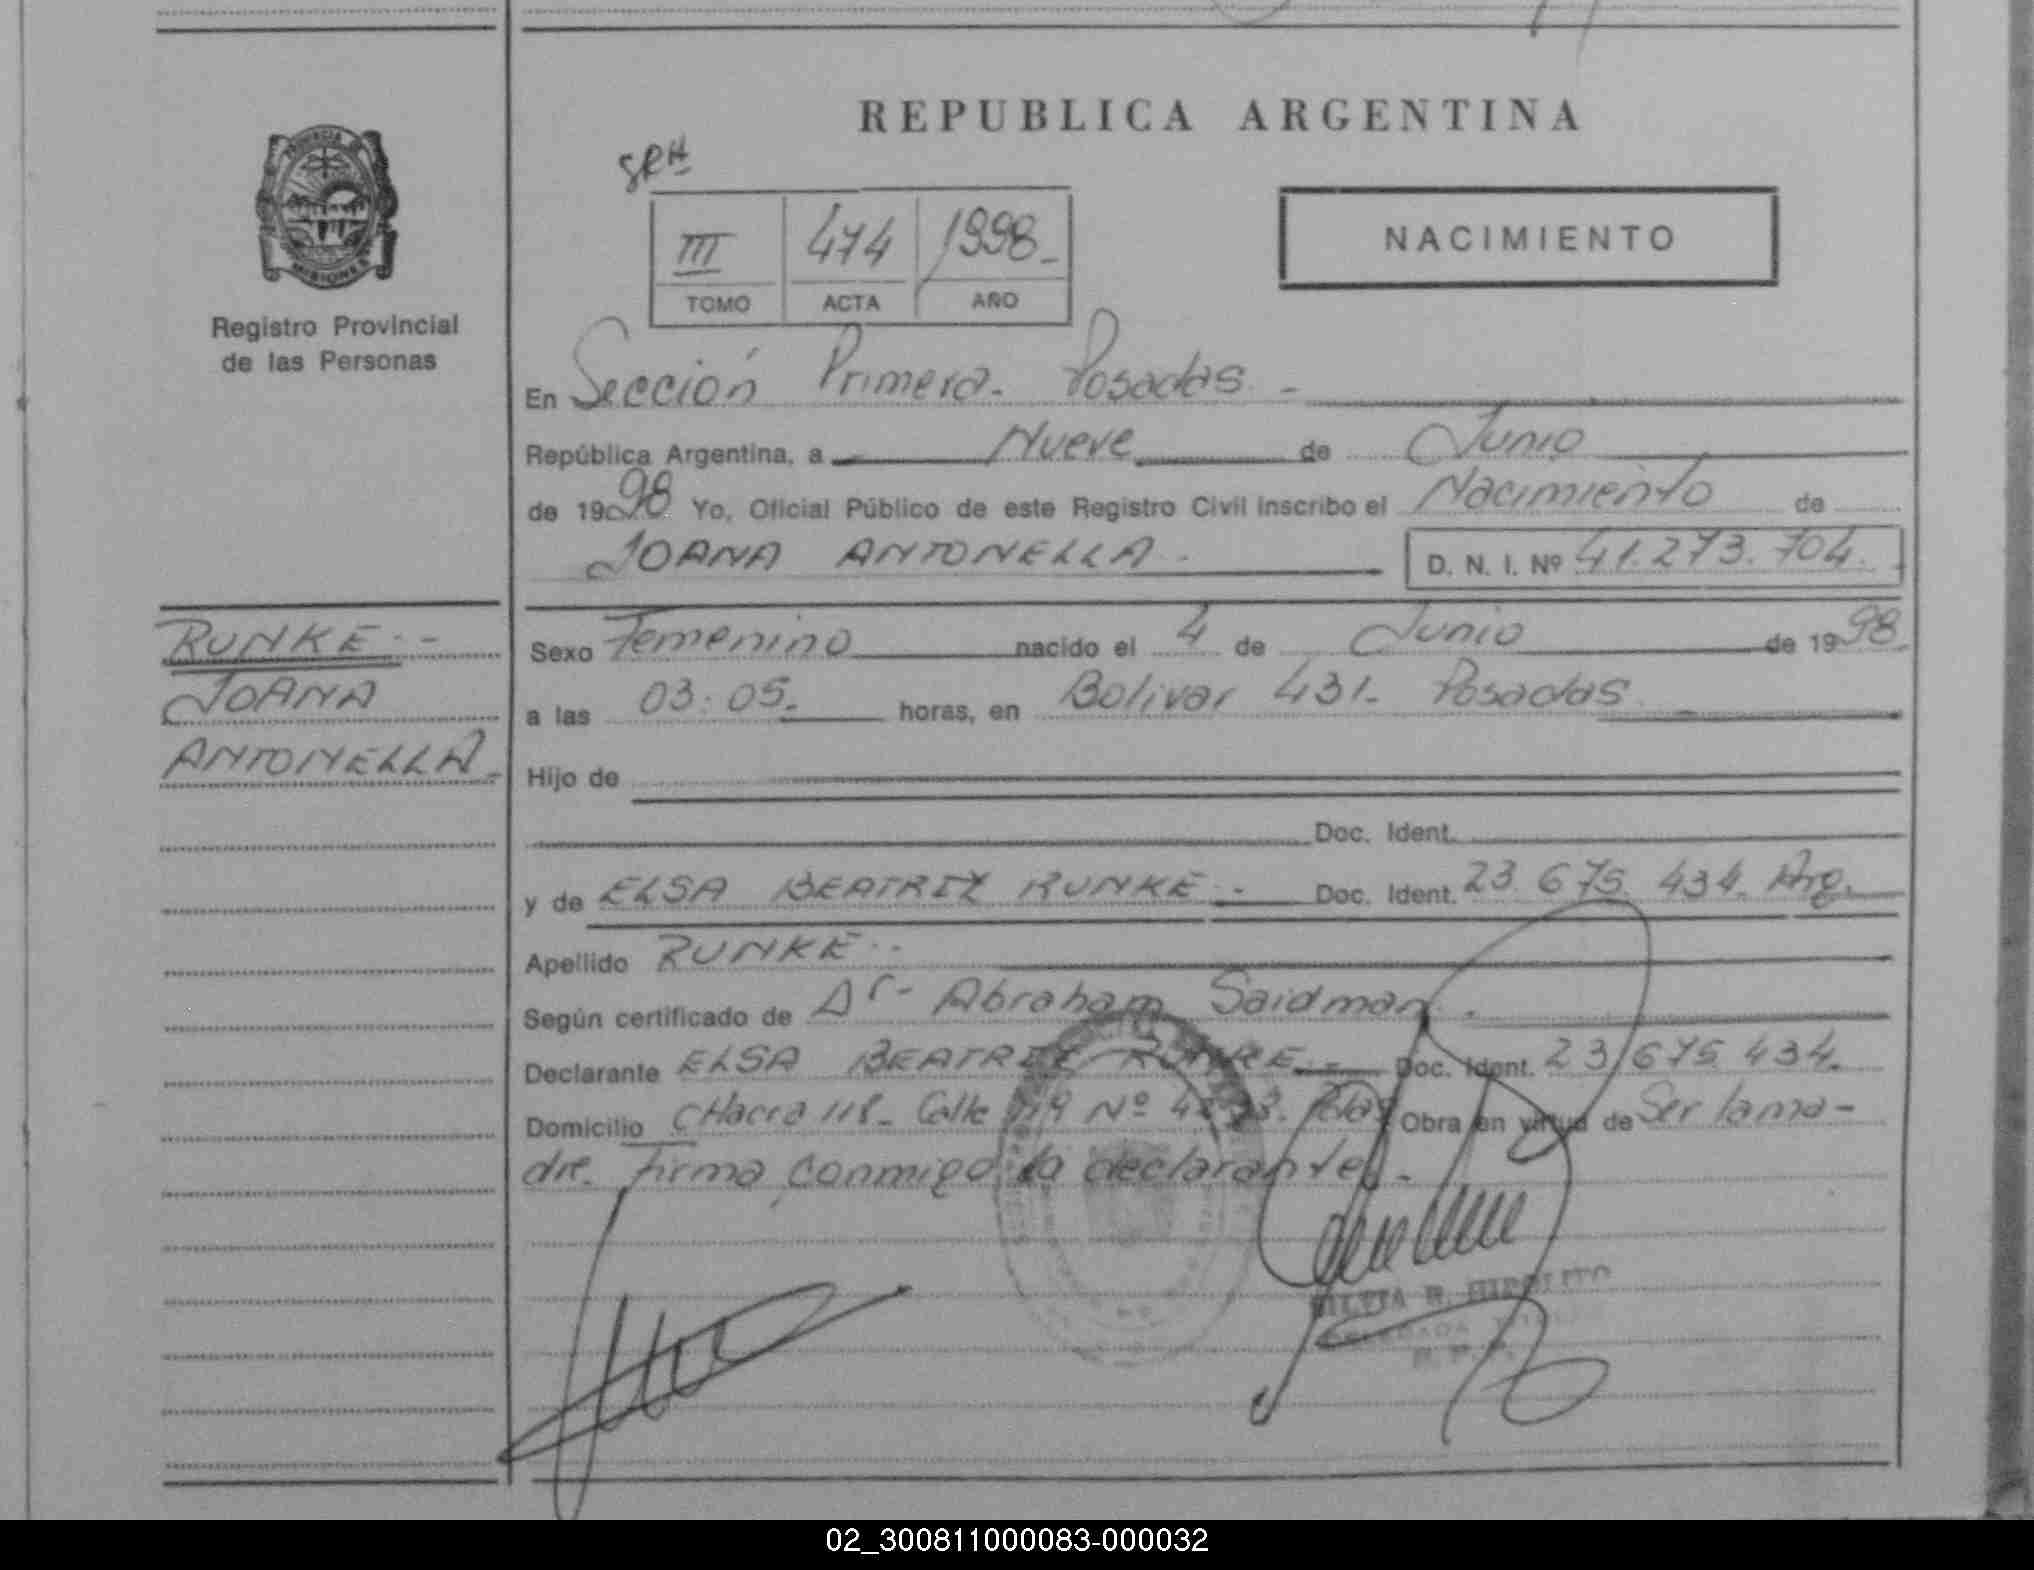 REPUBLICA ARGENTINA
SRH
PROVINCIA DE
MISIONES
III 474 1998-
TOMO ACTA AÑO
NACIMIENTO
Registro Provincial
de las Personas
En Sección Primera- Posadas. -
República Argentina, a Nueve de Junio
de 1998 Yo, Oficial Público de este Registro Civil inscribo el Nacimiento de
JOANA ANTONELLA.- D. N. I. Nº 41.273.704.-
RUNKE.-
JOANA
ANTONELLA-
Sexo Femenino nacido el 4 de Junio de 1998.
a las 03:05.- horas, en Bolivar 431- Posadas. -
Hijo de
Doc. Ident.
y de ELSA BEATRIZ RUNKE.- Doc. Ident. 23.675.434. Arg.
Apellido RUNKE.-
Según certificado de Dr- Abraham Saidman.
Declarante ELSA BEATRIZ RUNKE.- Doc. Ident. 23.675.434.
Domicilio CHacra 118- Calle Nº Pdas Obra en virtud de Ser la ma-
dre. Firma conmigo la declarante.-
SILVIA R. HIPOLITO
02_300811000083-000032